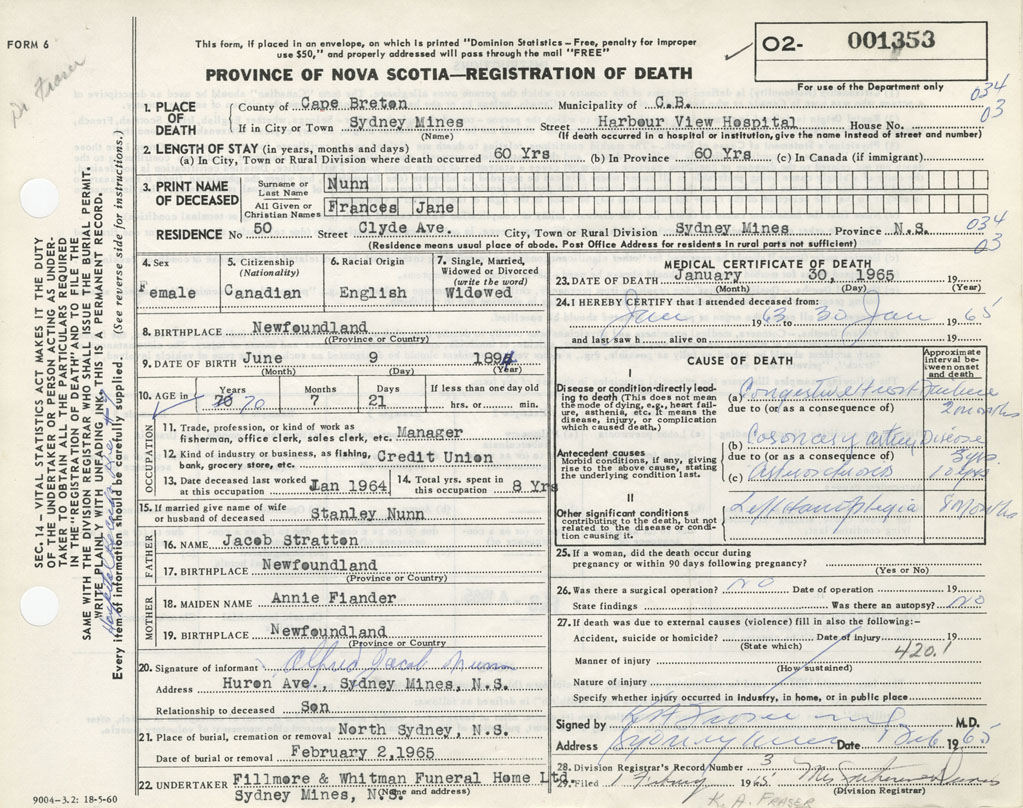 FORM 6
Dr Fraser
This form, if placed in an envelope, on which is printed "Dominion Statistics—Free, penalty for improper
use $50," and properly addressed will pass through the mail "FREE"
PROVINCE OF NOVA SCOTIA—REGISTRATION OF DEATH
02- 001353
For use of the Department only
034
03
1. PLACE OF DEATH
County of Cape Breton Municipality of C.B.
If in City or Town Sydney Mines Street Harbour View Hospital House No.
(Name) (If death occurred in a hospital or institution, give the name instead of street and number)
2. LENGTH OF STAY (in years, months and days)
(a) In City, Town or Rural Division where death occurred 60 Yrs (b) In Province 60 Yrs (c) In Canada (if immigrant)
3. PRINT NAME OF DECEASED
Surname or Last Name Nunn
All Given or Christian Names Frances Jane
RESIDENCE No 50 Street Clyde Ave. City, Town or Rural Division Sydney Mines Province N.S.
(Residence means usual place of abode. Post Office Address for residents in rural parts not sufficient)
034
03
4. Sex
Female
5. Citizenship (Nationality)
Canadian
6. Racial Origin
English
7. Single, Married, Widowed or Divorced (write the word)
Widowed
8. BIRTHPLACE Newfoundland
(Province or Country)
9. DATE OF BIRTH June 9 1894
(Month) (Day) (Year)
10. AGE in Years Months Days If less than one day old
70 7 21 hrs. or min.
OCCUPATION
11. Trade, profession, or kind of work as
fisherman, office clerk, sales clerk, etc. Manager
12. Kind of industry or business, as fishing,
bank, grocery store, etc. Credit Union
13. Date deceased last worked at this occupation Jan 1964
14. Total yrs. spent in this occupation 8 Yrs
15. If married give name of wife
or husband of deceased Stanley Nunn
FATHER
16. NAME Jacob Stratton
17. BIRTHPLACE Newfoundland
(Province or Country)
MOTHER
18. MAIDEN NAME Annie Fiander
19. BIRTHPLACE Newfoundland
(Province or Country
20. Signature of informant Alfred Jacob Nunn
Address Huron Ave., Sydney Mines, N.S.
Relationship to deceased Son
21. Place of burial, cremation or removal North Sydney, N.S.
Date of burial or removal February 2,1965
22. UNDERTAKER Fillmore & Whitman Funeral Home Ltd.
Sydney Mines, N.S. (Name and address)
MEDICAL CERTIFICATE OF DEATH
23. DATE OF DEATH January 30, 1965 19
(Month) (Day) (Year)
24. I HEREBY CERTIFY that I attended deceased from:
Jan 1963 to 30 Jan 1965
and last saw h alive on 19
CAUSE OF DEATH
Approximate interval between onset and death
I
Disease or condition directly leading to death (This does not mean the mode of dying, e.g., heart failure, asthenia, etc. It means the disease, injury, or complication which caused death.)
(a) Congestive Heart Failure
due to (or as a consequence of) 2 months
Antecedent causes
Morbid conditions, if any, giving rise to the above cause, stating the underlying condition last.
(b) Coronary Artery Disease
due to (or as a consequence of) 3 yrs.
(c) 10 yrs
II
Other significant conditions
contributing to the death, but not related to the disease or condition causing it.
Left Hemiplegia 8 months
25. If a woman, did the death occur during
pregnancy or within 90 days following pregnancy?
(Yes or No)
26. Was there a surgical operation? No Date of operation 19
State findings Was there an autopsy? No
27. If death was due to external causes (violence) fill in also the following:—
Accident, suicide or homicide? Date of injury 19
(State which)
420.1
Manner of injury
(How sustained)
Nature of injury
Specify whether injury occurred in industry, in home, or in public place
Signed by K A Fraser M.D.
Address Sydney Mines Date 1 Feb 1965
28. Division Registrar's Record Number 3
29. Filed 1 February 1965 Mrs
(Division Registrar)
K. A. FRASER
9004-3.2: 18-5-60
SEC. 14—VITAL STATISTICS ACT MAKES IT THE DUTY
OF THE UNDERTAKER OR PERSON ACTING AS UNDER-
TAKER TO OBTAIN ALL THE PARTICULARS REQUIRED
IN THE "REGISTRATION OF DEATH" AND TO FILE THE
SAME WITH THE DIVISION REGISTRAR WHO SHALL ISSUE THE BURIAL PERMIT.
WRITE PLAINLY WITH UNFADING INK. THIS IS A PERMANENT RECORD.
Every item of information should be carefully supplied. (See reverse side for instructions.)